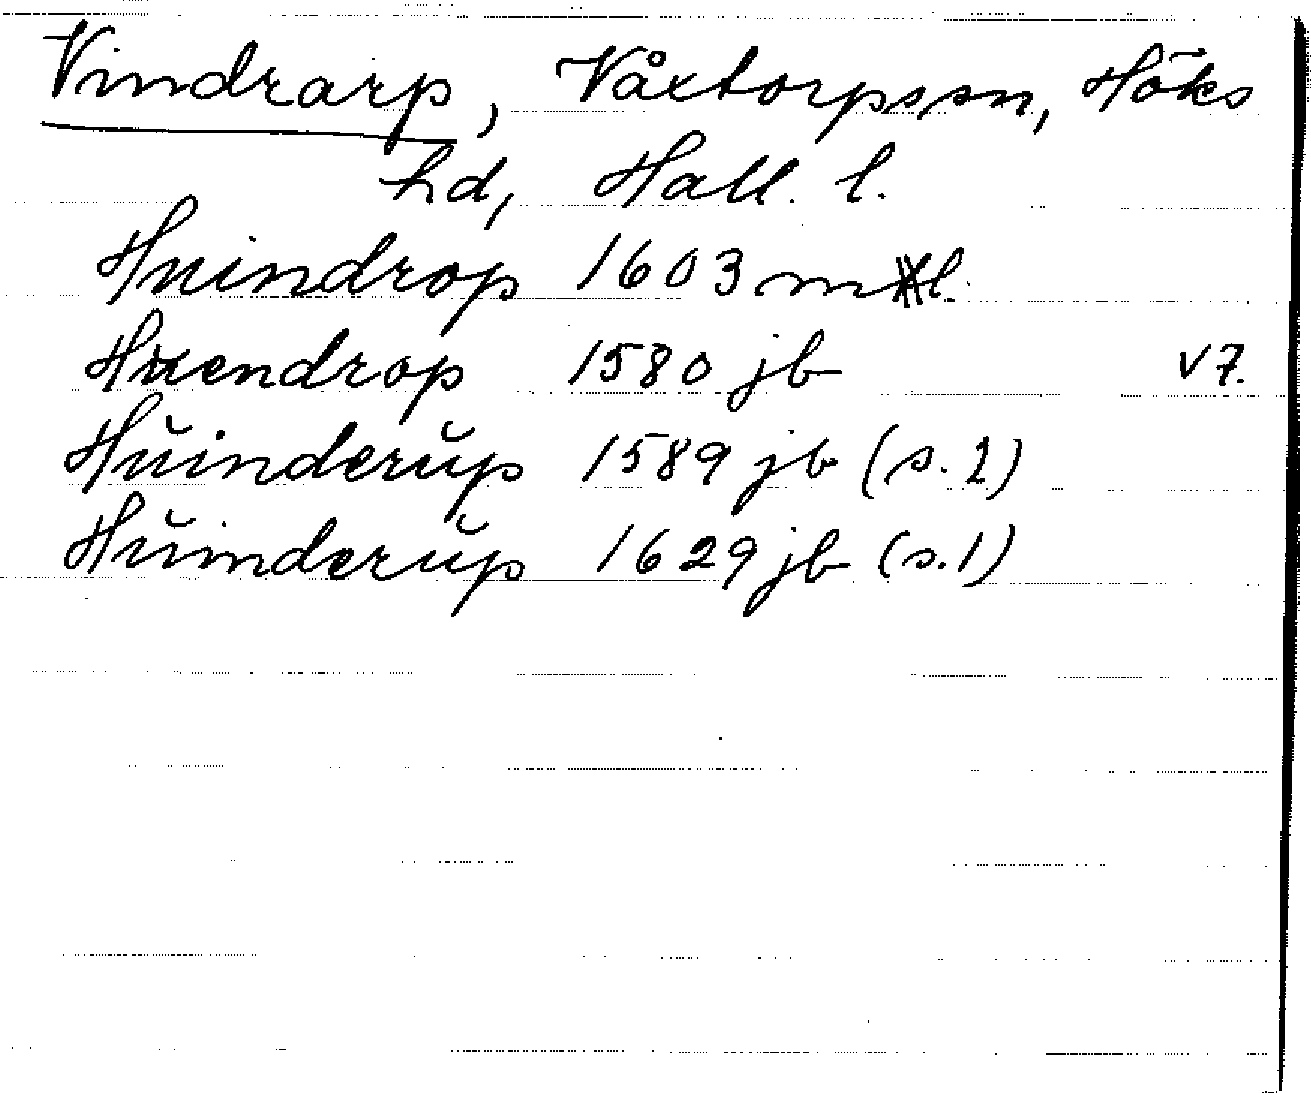 Vindrarp, Våxtorpssn, Höks
hd, Hall. l.
Huindrop 1603 mtl.
Huendrop 1580 jb v7.
Hŭinderŭp 1589 jb (s. 2)
Hŭinderŭp 1629 jb (s. 1)